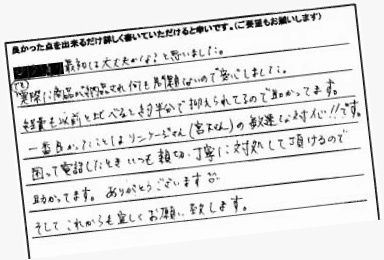 良かった点を出来るだけ詳しく書いていただけると幸いです。(ご要望もお願いします)
最初は大丈夫かな?と思いました。
でも実際に商品が納品され何も問題ないので安心しました。
経費も以前と比べると約半分で抑えられてるので助かってます。
一番良かったことはリンケージさん(宮さん)の敏速な対応!!です。
困って電話したときいつも親切、丁寧に対処して頂けるので
助かってます。ありがとうございます
そしてこれからも宜しくお願い致します。